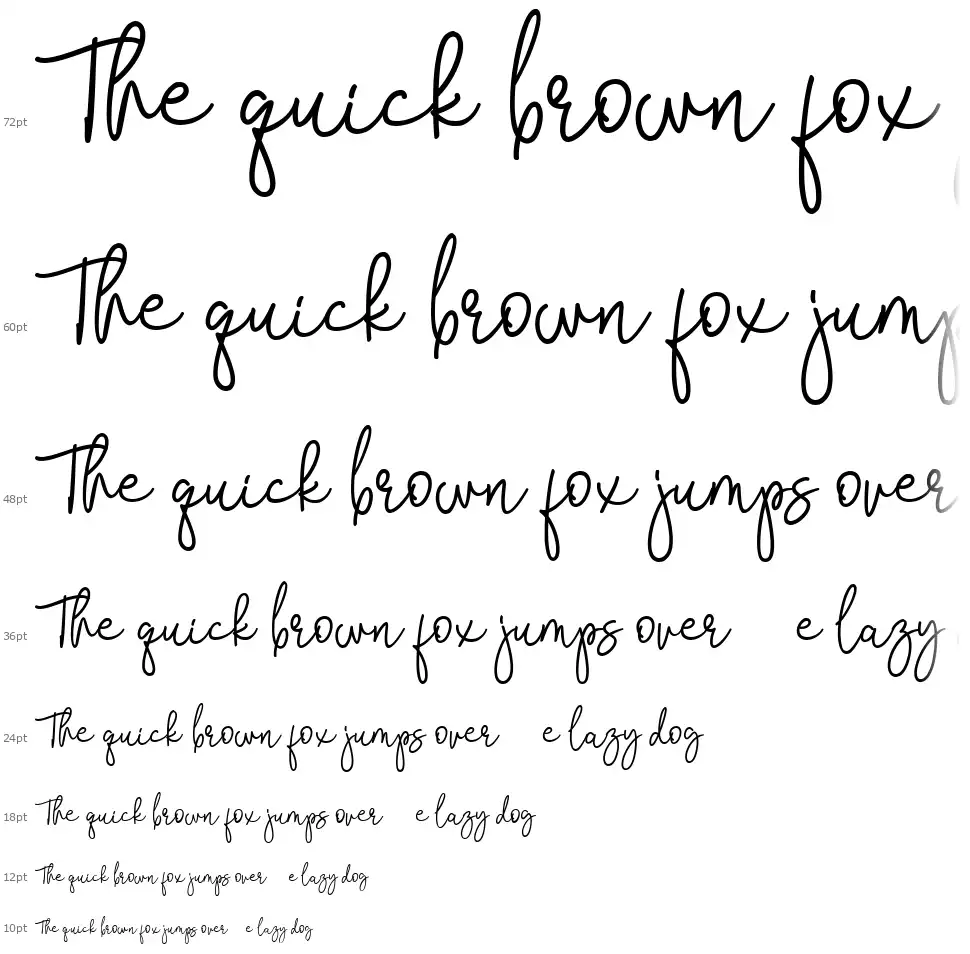 72pt The quick brown fox
60pt The quick brown fox jump
48pt The quick brown fox jumps over
36pt The quick brown fox jumps over e lazy
24pt The quick brown fox jumps over e lazy dog
18pt The quick brown fox jumps over e lazy dog
12pt The quick brown fox jumps over e lazy dog
10pt The quick brown fox jumps over e lazy dog